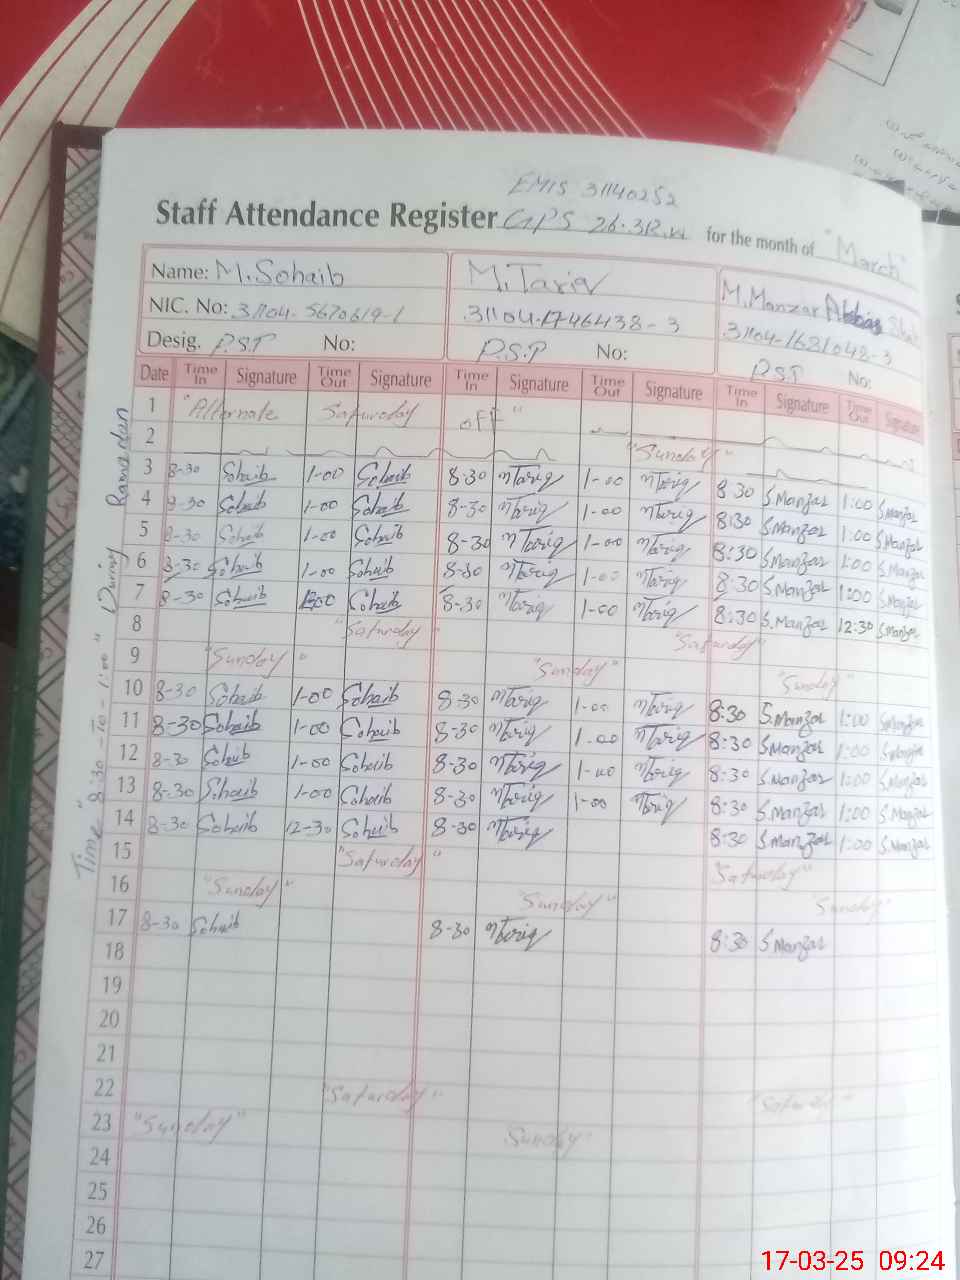 EMIS 31140252
Staff Attendance Register GPS 26.3R for the month of "March"
Name: M. Sohaib M. Tariq M. Manzar Abbas Shah
NIC. No: 31104-5670619-1 31104-1746438-3 31104-1631048-3
Desig. P.S.T No: P.S.P No: P.S.T No:
Date Time In Signature Time Out Signature Time In Signature Time Out Signature Time In Signature Time Out Signature
Time "8:30-To-1:00" During Ramadan
1 "Alternate Saturday off"
2 "Sunday"
3 8-30 Sohaib 1-00 Sohaib 8-30 MTariq 1-00 MTariq 8:30 S.Manzar 1:00 S.Manzar
4 8-30 Sohaib 1-00 Sohaib 8-30 MTariq 1-00 MTariq 8:30 S.Manzar 1:00 S.Manzar
5 8-30 Sohaib 1-00 Sohaib 8-30 MTariq 1-00 MTariq 8:30 S.Manzar 1:00 S.Manzar
6 8-30 Sohaib 1-00 Sohaib 8-30 MTariq 1-00 MTariq 8:30 S.Manzar 1:00 S.Manzar
7 8-30 Sohaib Sohaib 8-30 MTariq 1-00 MTariq 8:30 S.Manzar 12:30 S.Manzar
8 "Saturday" "Saturday"
9 "Sunday" "Sunday" "Sunday"
10 8-30 Sohaib 1-00 Sohaib 8-30 MTariq 1-00 MTariq 8:30 S.Manzar 1:00 S.Manzar
11 8-30 Sohaib 1-00 Sohaib 8-30 MTariq 1-00 MTariq 8:30 S.Manzar 1:00 S.Manzar
12 8-30 Sohaib 1-00 Sohaib 8-30 MTariq 1-00 MTariq 8:30 S.Manzar 1:00 S.Manzar
13 8-30 Sohaib 1-00 Sohaib 8-30 MTariq 1-00 MTariq 8:30 S.Manzar 1:00 S.Manzar
14 8-30 Sohaib 12-30 Sohaib 8-30 MTariq 8:30 S.Manzar 1:00 S.Manzar
15 "Saturday" "Saturday"
16 "Sunday" "Sunday" "Sunday"
17 8-30 Sohaib 8-30 MTariq 8:30 S.Manzar
18
19
20
21
22 "Saturday" "Saturday"
23 "Sunday" "Sunday"
24
25
26
27
17-03-25 09:24